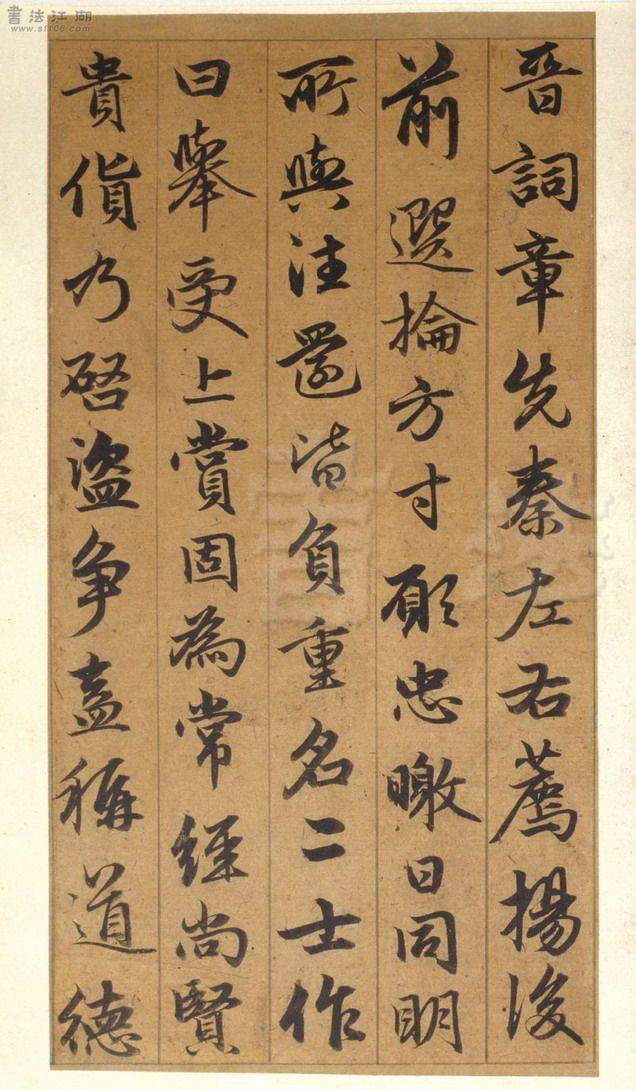 書法江湖
www.sf108.com
晉詞章先秦左右薦揚後
前選掄方寸願忠曒日同明
所與往還皆負重名二士作
曰舉受上賞固為常經尚賢
貴貨乃啓盜爭盖稱道德